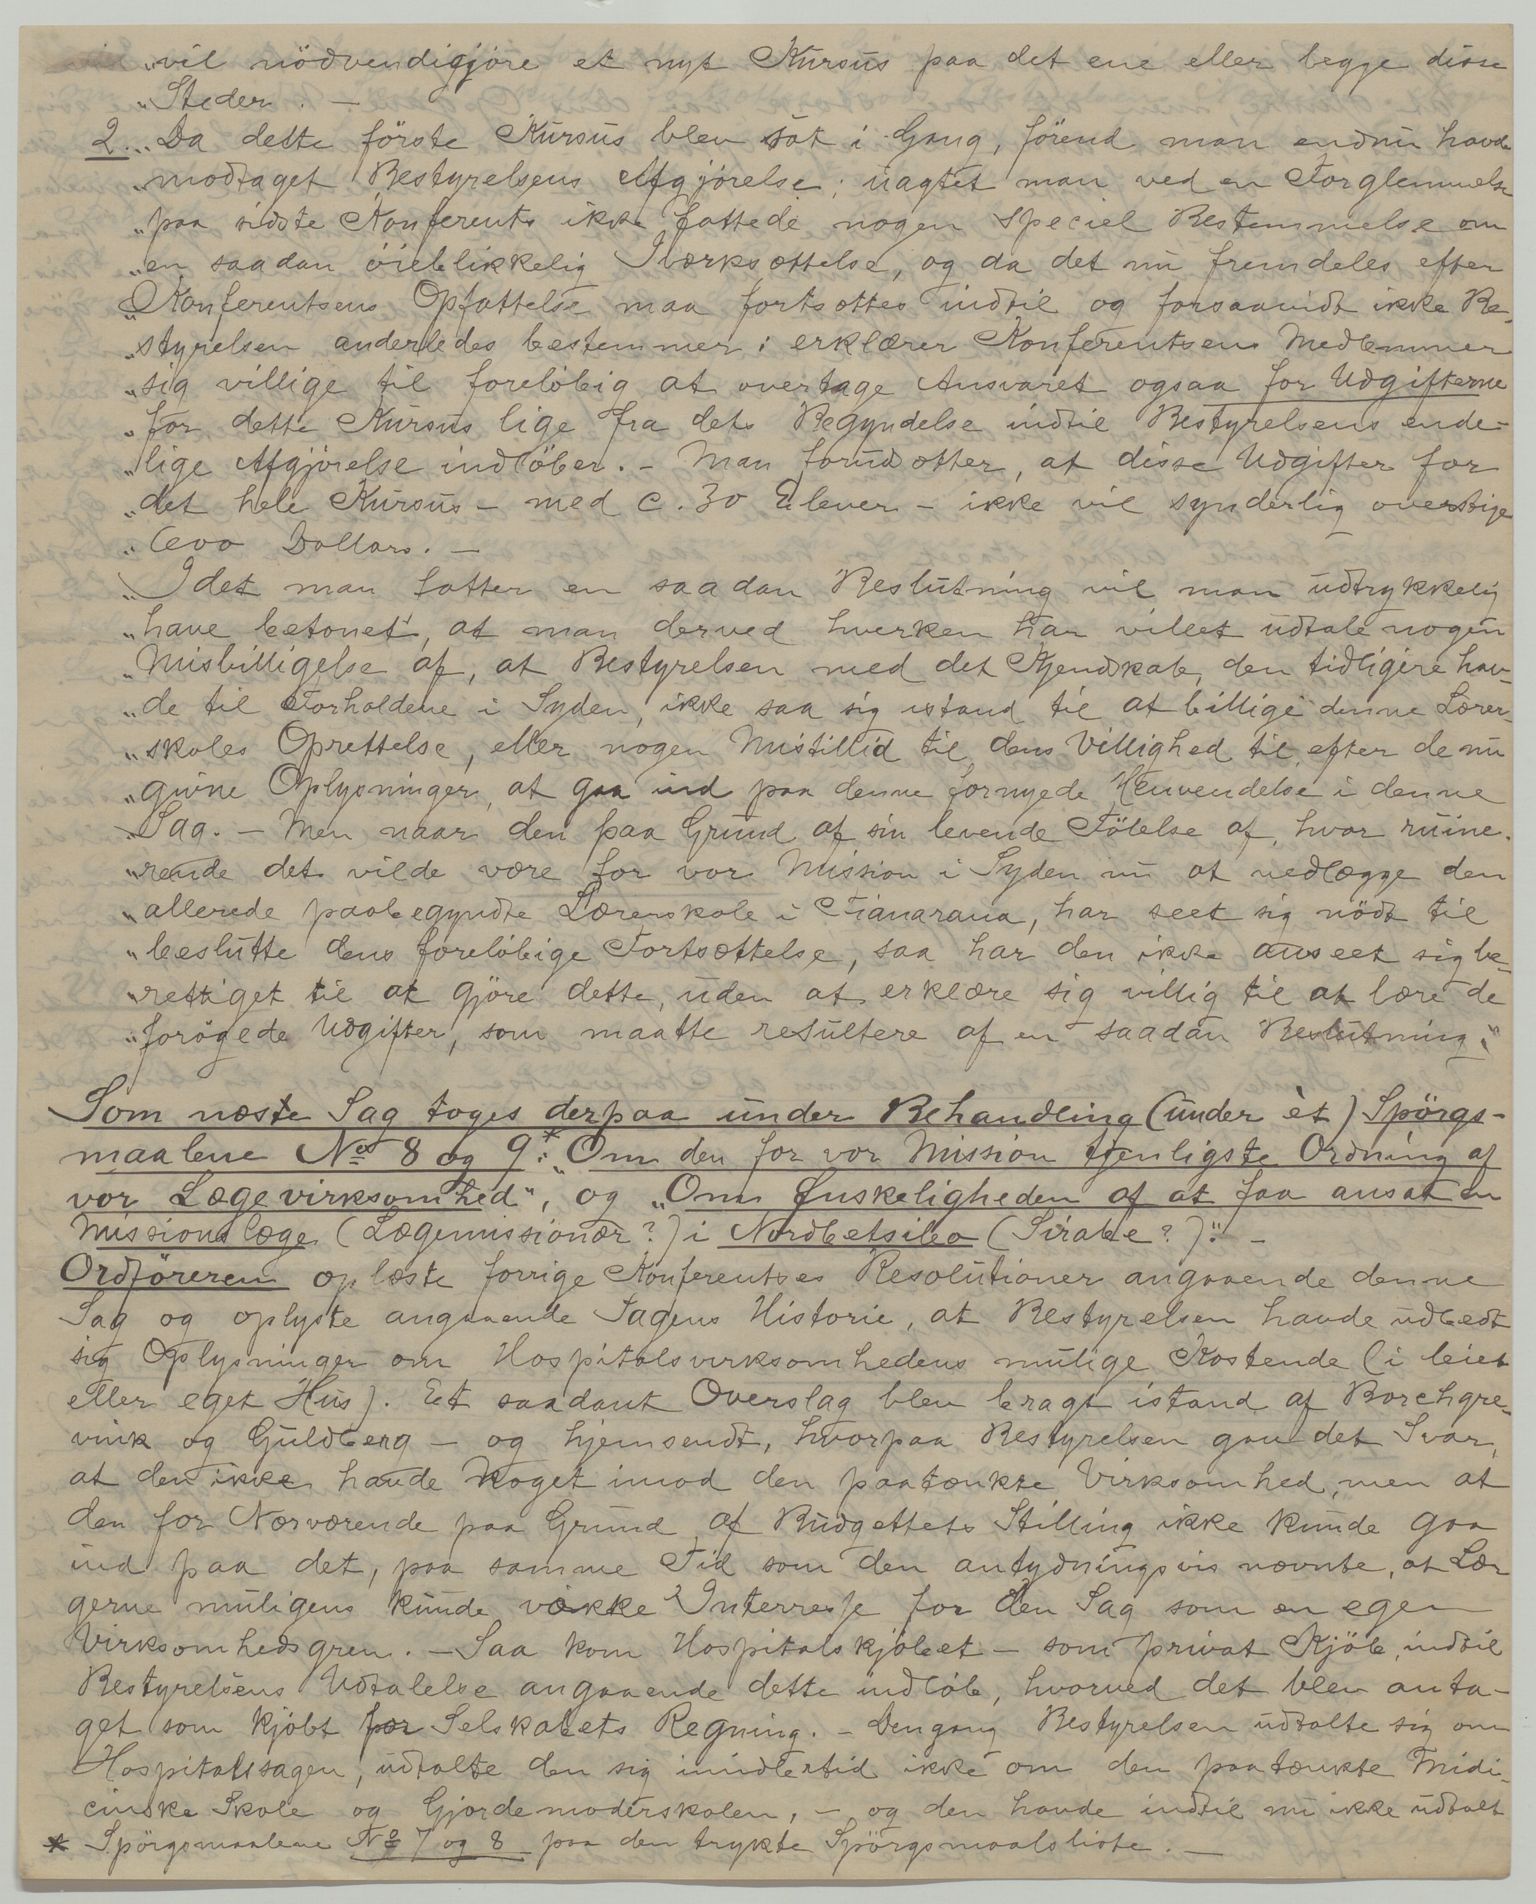 „vil nödvendiggjöre et nyt Kursus paa det ene eller begge disse
„Steder. –
2. „Da dette förste Kursus blev sat i Gang, förend man endnu havde
„modtaget Bestyrelsens Afgjörelse; uagtet man ved en Forglemmelse
„paa sidste Konferents ikke fattede nogen speciel Bestemmelse om
„en saadan öieblikkelig Iværksættelse, og da det nu fremdeles efter
„Konferentsens Opfattelse maa fortsættes indtil og forsaavidt ikke Be-
„styrelsen anderledes bestemmer: erklærer Konferentsens Medlemmer
„sig villige til foreløbig at overtage Ansvaret ogsaa for Udgifterne
„for dette Kursus lige fra dets Begyndelse indtil Bestyrelsens ende-
„lige Afgjörelse indløber. – Man forudsætter, at disse Udgifter for
„det hele Kursus – med c. 30 Elever – ikke vil synderlig overstige
„ Dollars. –
„Idet man fatter en saadan Beslutning vil man udtrykkelig
„have betonet, at man derved hverken har villet udtale nogen
„Misbilligelse af, at Bestyrelsen med det Kjendskab, den tidligere hav-
„de til Forholdene i Syden, ikke saa sig istand til at billige denne Lærer-
„skoles Oprettelse, eller nogen Mistillid til dens Villighed til efter de nu
„givne Oplysninger, at gaa ind paa denne fornyede Henvendelse i denne
„Sag. – Men naar den paa Grund af sin levende Følelse af, hvor ruine-
„rende det vilde være for vor Mission i Syden nu at nedlægge den
„allerede paabegyndte Lærerskole i Fianarana, har seet sig nödt til
„beslutte dens foreløbige Fortsættelse, saa har den ikke anseet sig be-
„rettiget til at gjöre dette, uden at erklære sig villig til at bære de
„forögede Udgifter, som maatte resultere af en saadan Beslutning."
Som næste Sag toges derpaa under Behandling (under èt) Spörgs-
maalene Nos 8 og 9*: „Om den for vor Mission tjenligste Ordning af
vor Lægevirksomhed", og „Om Ønskeligheden af at faa ansat en
Missionslæge (Lægemissionær?) i Nordbetsileo (Sirabe?)". –
Ordföreren oplæste forrige Konferentses Resolutioner angaaende denne
Sag og oplyste angaaende Sagens Historie, at Bestyrelsen havde udbedt
sig Oplysninger om Hospitalsvirksomhedens mulige Kostende (i leiet
eller eget Hus). Et saadant Overslag blev bragt istand af Borchgre-
vink og Guldberg – og hjemsendt, hvorpaa Bestyrelsen gav det Svar,
at den ikke havde Noget imod den paatænkte Virksomhed, men at
den for Nærværende paa Grund af Budgettets Stilling ikke kunde gaa
ind paa det, paa samme Tid som den antydningsvis nævnte, at Læ-
gerne muligens kunde vække Interresse for den Sag som en egen
Virksomhedsgren. – Saa kom Hospitalskjøbet – som privat Kjøb, indtil
Bestyrelsens Udtalelse angaaende dette indløb, hvorved det blev anta-
get som kjøbt for Selskabets Regning. – Dengang Bestyrelsen udtalte sig om
Hospitalssagen, udtalte den sig imidlertid ikke om den paatænkte Midi-
cinske Skole og Gjordemoderskolen, – og den havde indtil nu ikke udtalt
* Spörgsmaalene No 7 og 8 paa den trykte Spörgsmaalsliste. –